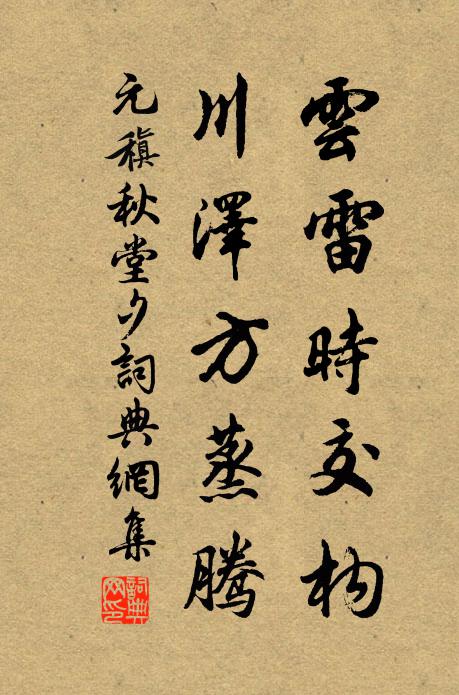 雲雷時交构
川澤方蒸騰
元稹秋堂夕詞典網集
詞典网印